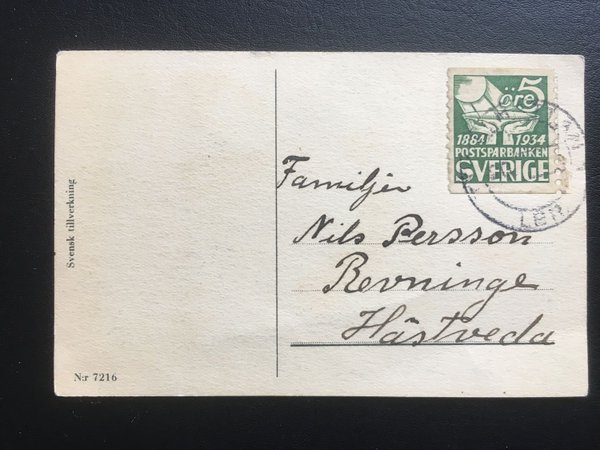 öre 5
1884 1934
POSTSPARBANKEN
SVERIGE
LBR
Familjen
Nils Persson
Revninge
Hästveda
Svensk tillverkning
N:r 7216